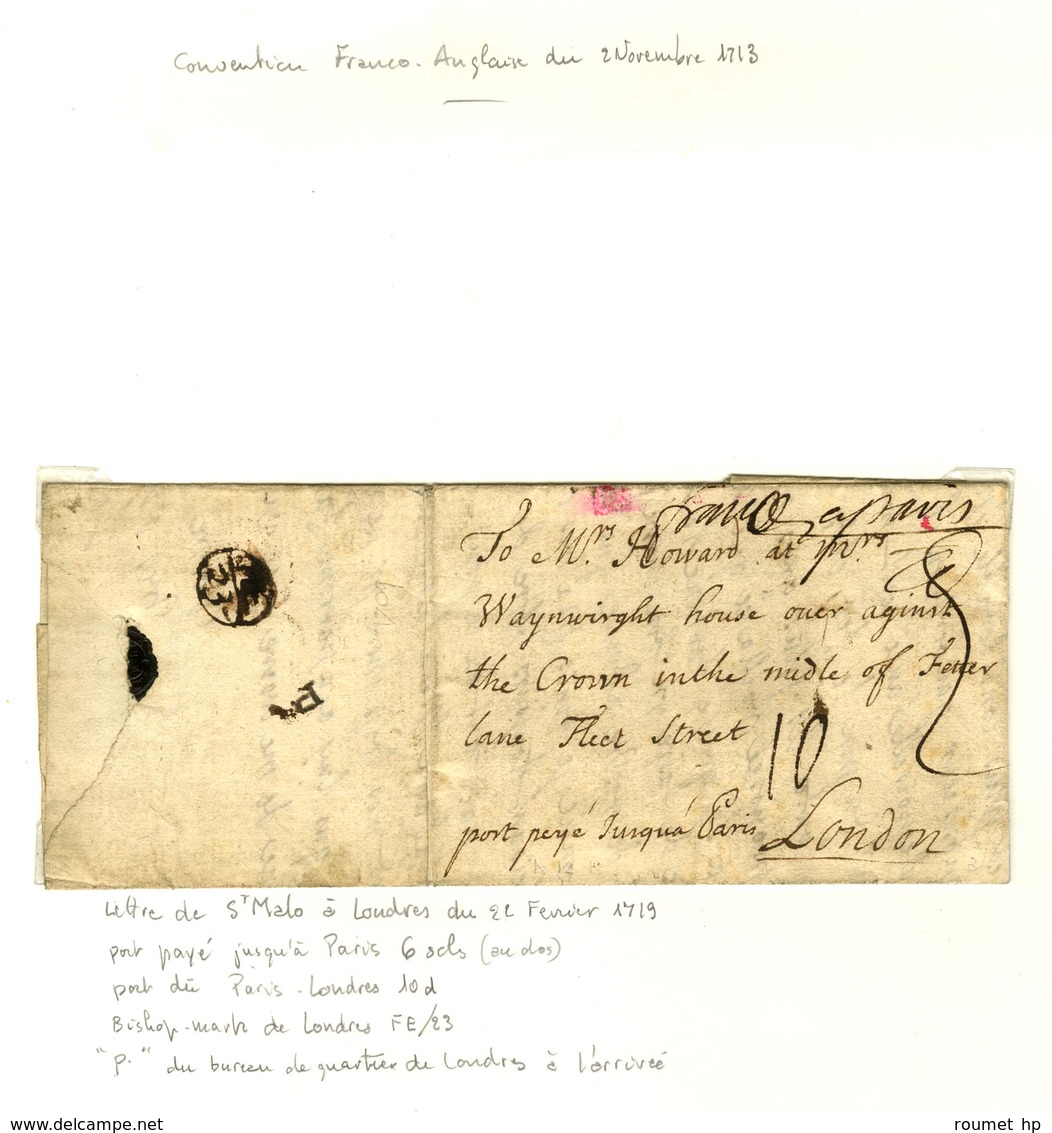 Convention Franco-Anglaise du 2 Novembre 1713
franco a paris
To Mrs. Howard at Mrs.
Waynwirght house over aginst
the Crown in the midle of Fetter
lane Fleet Street
10
port peyé Jusqu'á Paris London
FE
23
1709
P.
Lettre de St Malo à Londres du 22 Fevrier 1719
port payé jusqu'à Paris 6 sols (au dos)
port dû Paris-Londres 10d
Bishop-mark de Londres FE/23
"P." du bureau de quartier de Londres à l'arrivée
www.delcampe.com
roumet hp